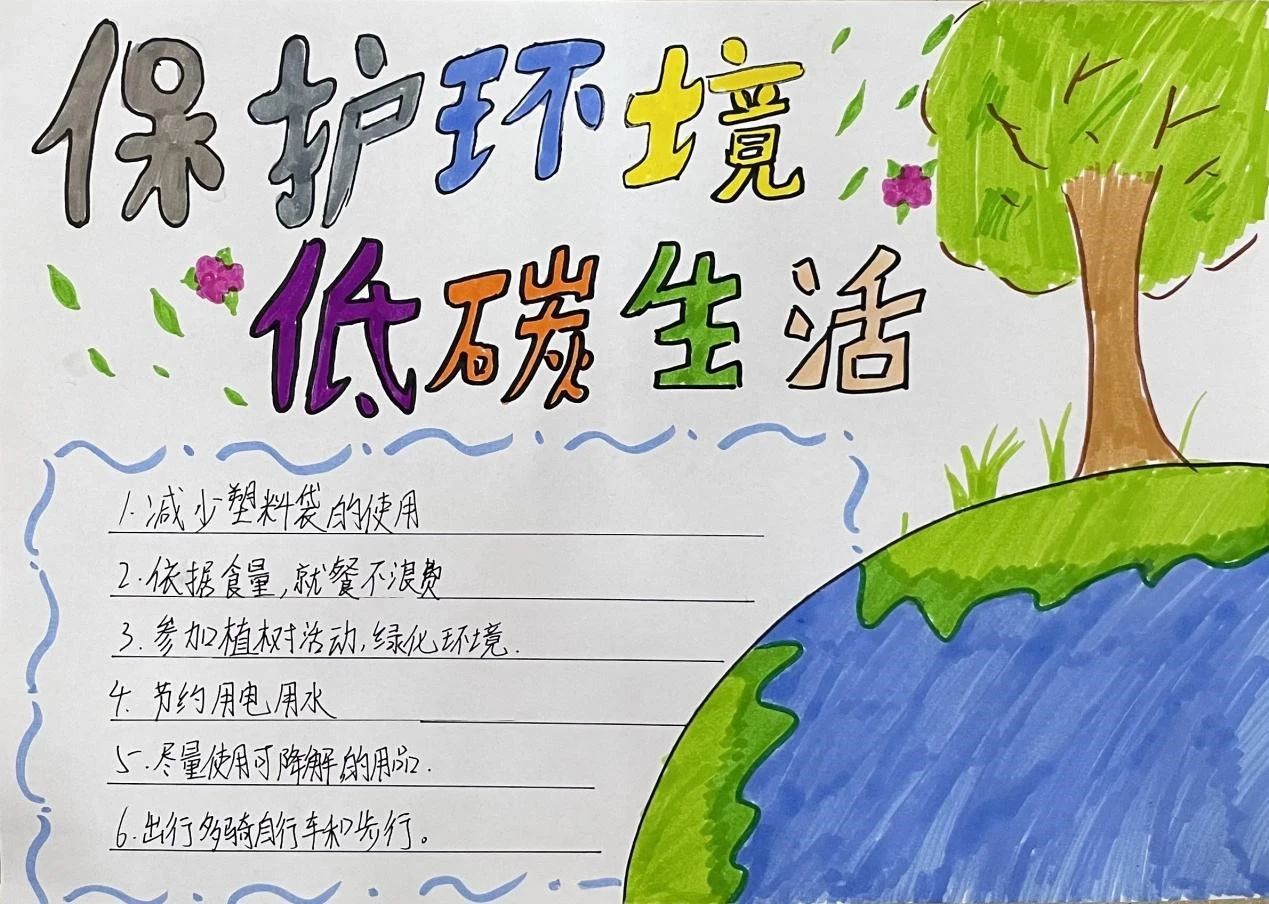 保护环境
低碳生活
1.减少塑料袋的使用
2.依据食量,就餐不浪费
3.参加植树活动,绿化环境.
4.节约用电用水
5.尽量使用可降解的用品.
6.出行多骑自行车和步行。